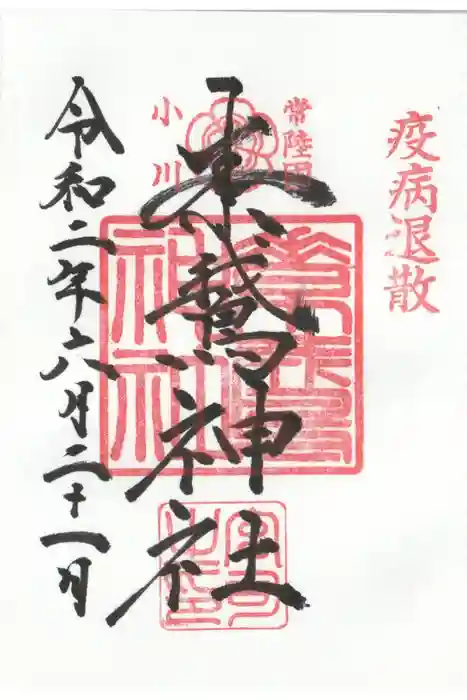 疫病退散
常陸国
小川
素鵞神社
令和二年六月二十一日
素鵞
神社
宮司
之印